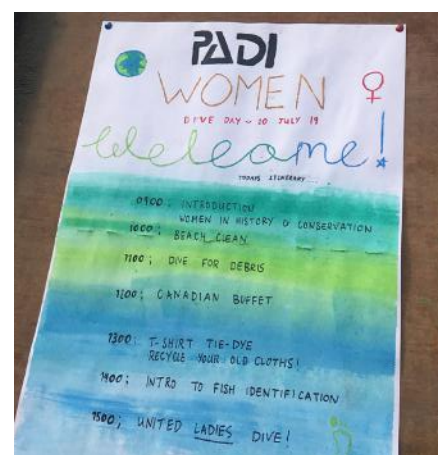 PADI
WOMEN
DIVE DAY ~ 20 JULY 19
Welcome!
TODAYS ITINERARY...
0900; INTRODUCTION
WOMEN IN HISTORY & CONSERVATION
1000; BEACH CLEAN
1100; DIVE FOR DEBRIS
1200; CANADIAN BUFFET
1300; T-SHIRT TIE-DYE
RECYCLE YOUR OLD CLOTHS!
1400; INTRO TO FISH IDENTIFICATION
1500; UNITED LADIES DIVE!